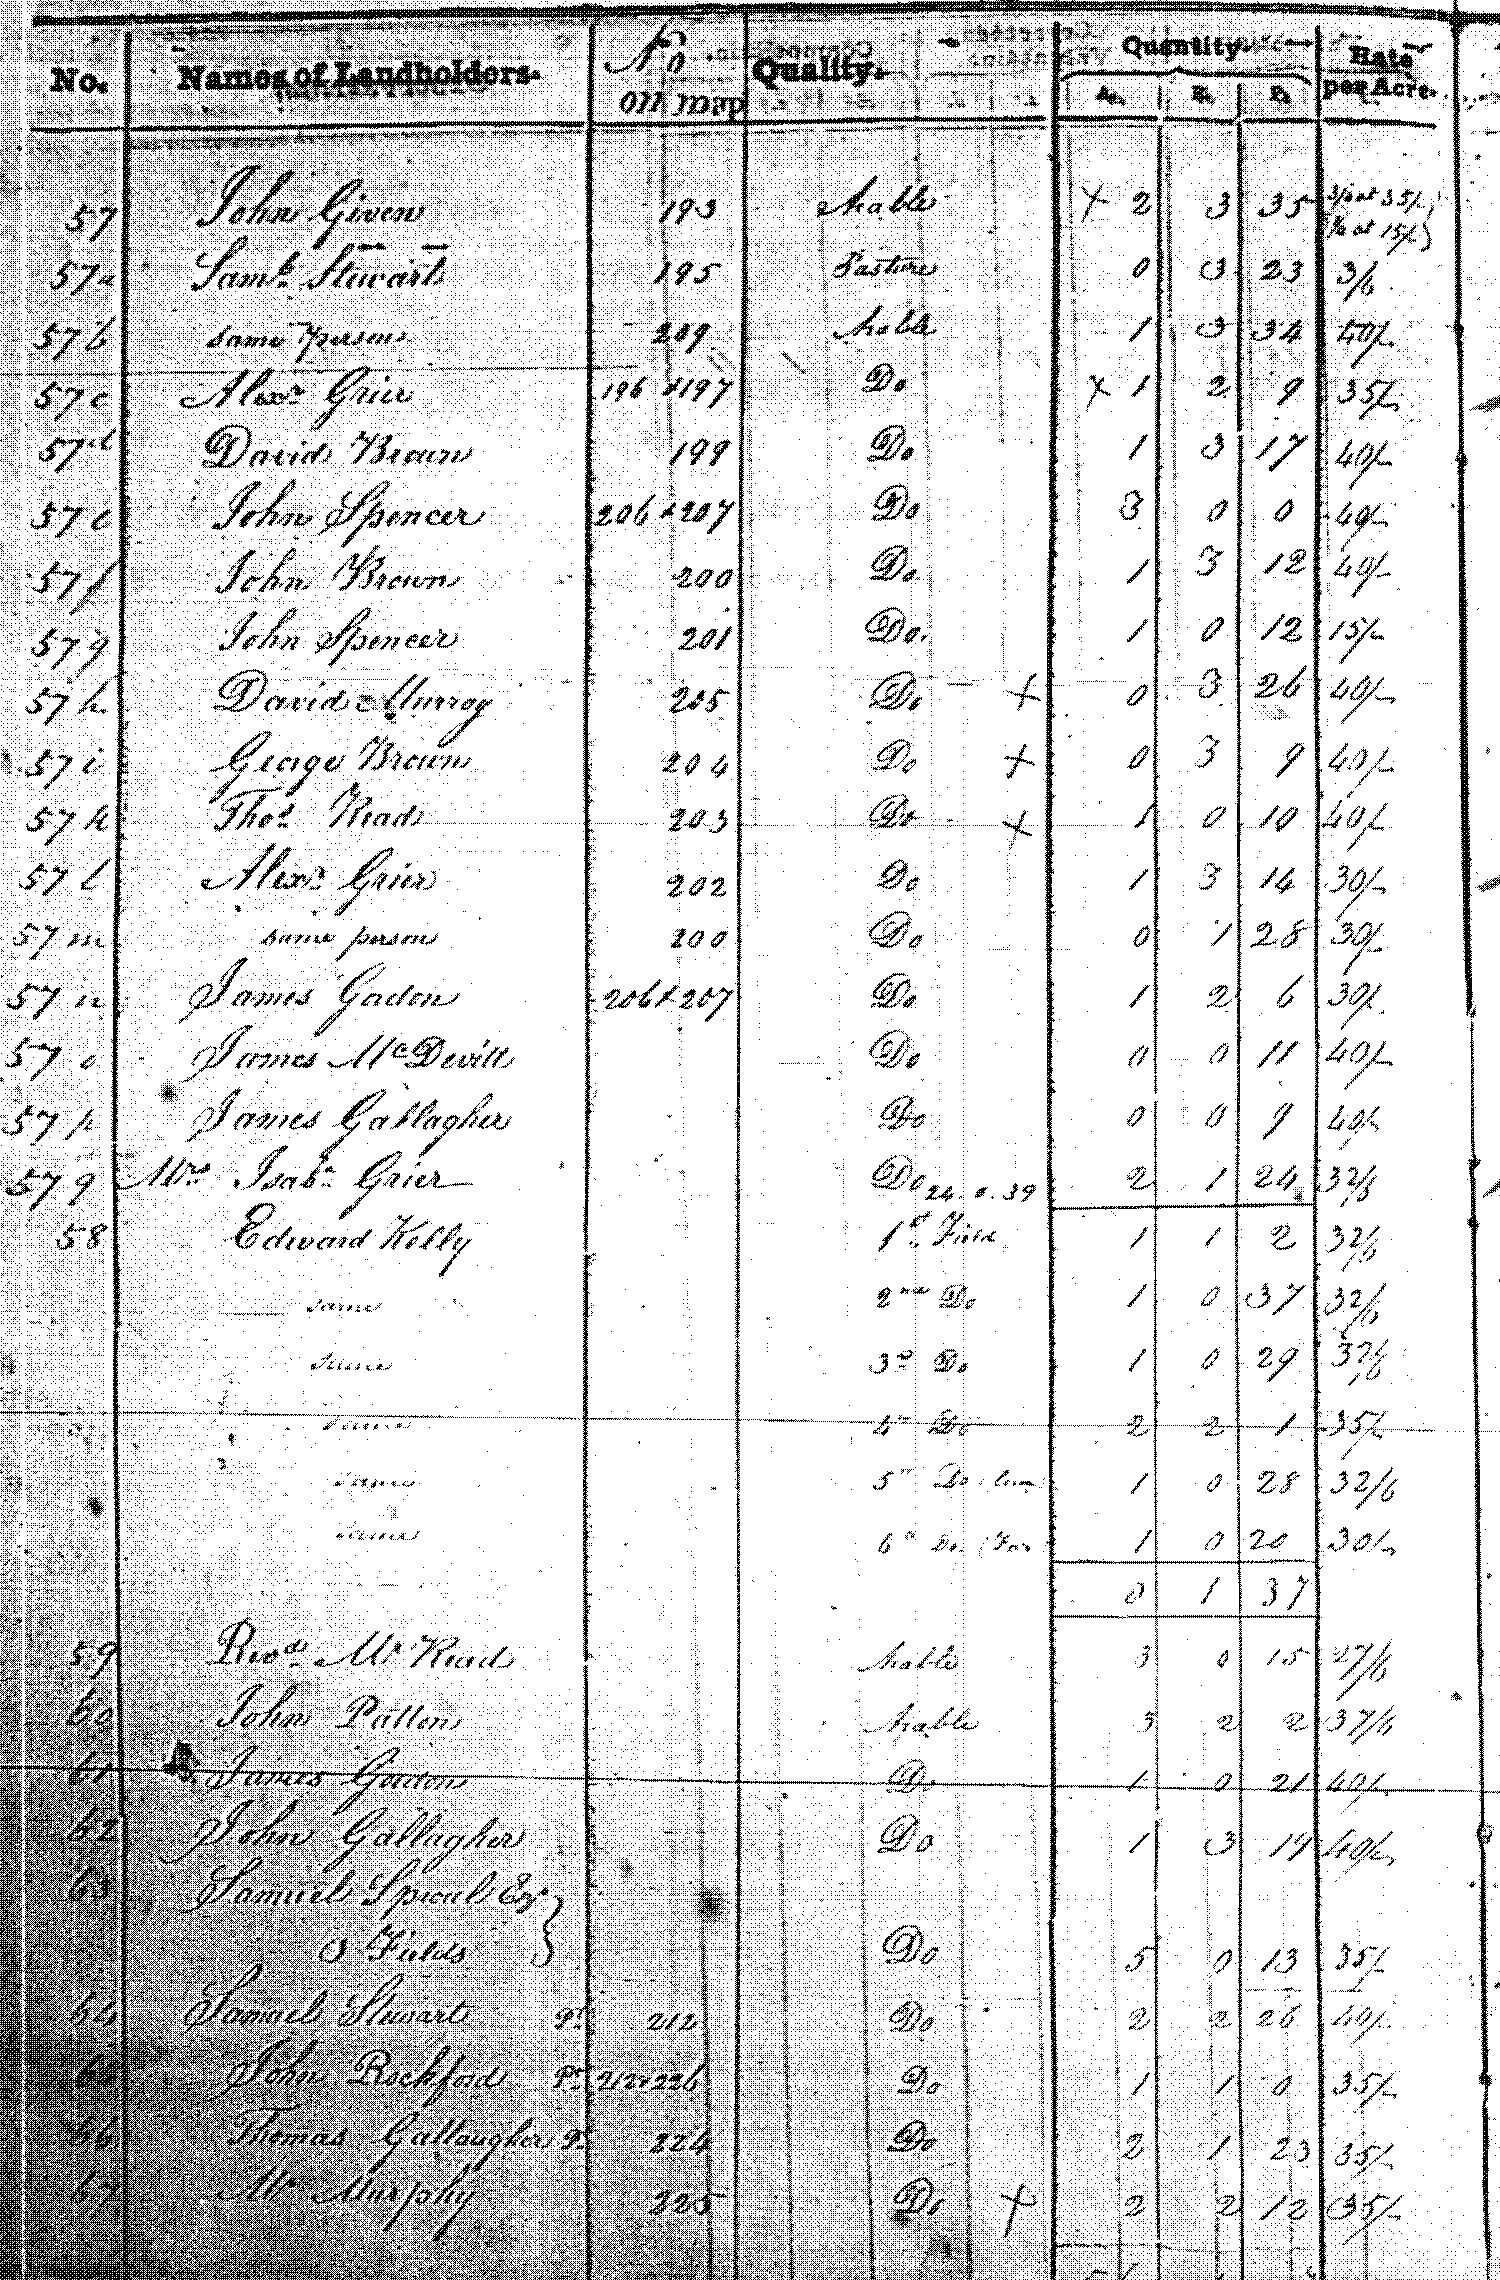 No. Names of Landholders. No on map Quality. Quantity Rate per Acre.
A. R. P.
57 John Given 193 Arable × 2 3 35 3/o at 35/- 1/o at 15/-
57a Saml. Stewart 195 Pasture 0 3 23 3/6
57b same person 209 Arable 1 3 34 40/-
57c Alexr Grier 196 & 197 Do × 1 2 9 35/-
57d David Brown 199 Do 1 3 17 40/-
57e John Spencer 206 & 207 Do 3 0 0 40/-
57f John Brown 200 Do 1 3 12 40/-
57g John Spencer 201 Do. 1 0 12 15/-
57h David Murray 205 Do × 0 3 26 40/-
57i George Brown 204 Do × 0 3 9 40/-
57k Thos. Read 203 Do × 1 0 10 40/-
57l Alexr. Grier 202 Do 1 3 14 30/-
57m same person 200 Do 0 1 28 30/-
57n James Gadon 206 & 207 Do 1 2 6 30/-
57o James McDevitt Do 0 0 11 40/-
57p James Gallagher Do 0 0 9 40/-
57q Mrs Isab. Grier Do 24.0.39 2 1 24 32/6
58 Edward Kelly 1st Field 1 1 2 32/6
same 2nd Do 1 0 37 32/6
same 3rd Do 1 0 29 32/6
same 4th Do 2 2 1 35/-
same 5th Do 1 0 28 32/6
same 6th Do. 1 0 20 30/-
0 1 37
59 Revd. Mr Read Arable 3 0 15 27/6
60 John Patton Arable 3 2 2 37/6
61 James Gordon Do 1 0 21 40/-
62 John Gallagher Do 1 3 19 40/-
63 Samuel Sproul Esqr
3 Fields Do 5 0 13 35/-
64 Samuel Stewart Pt. 212 Do 2 2 26 40/-
65 John Rochford Pt. 212 & 226 Do 1 1 0 35/-
66 Thomas Gallaugher Pt. 224 Do 2 1 23 35/-
67 Mr Murphy 225 Do × 2 2 12 35/-